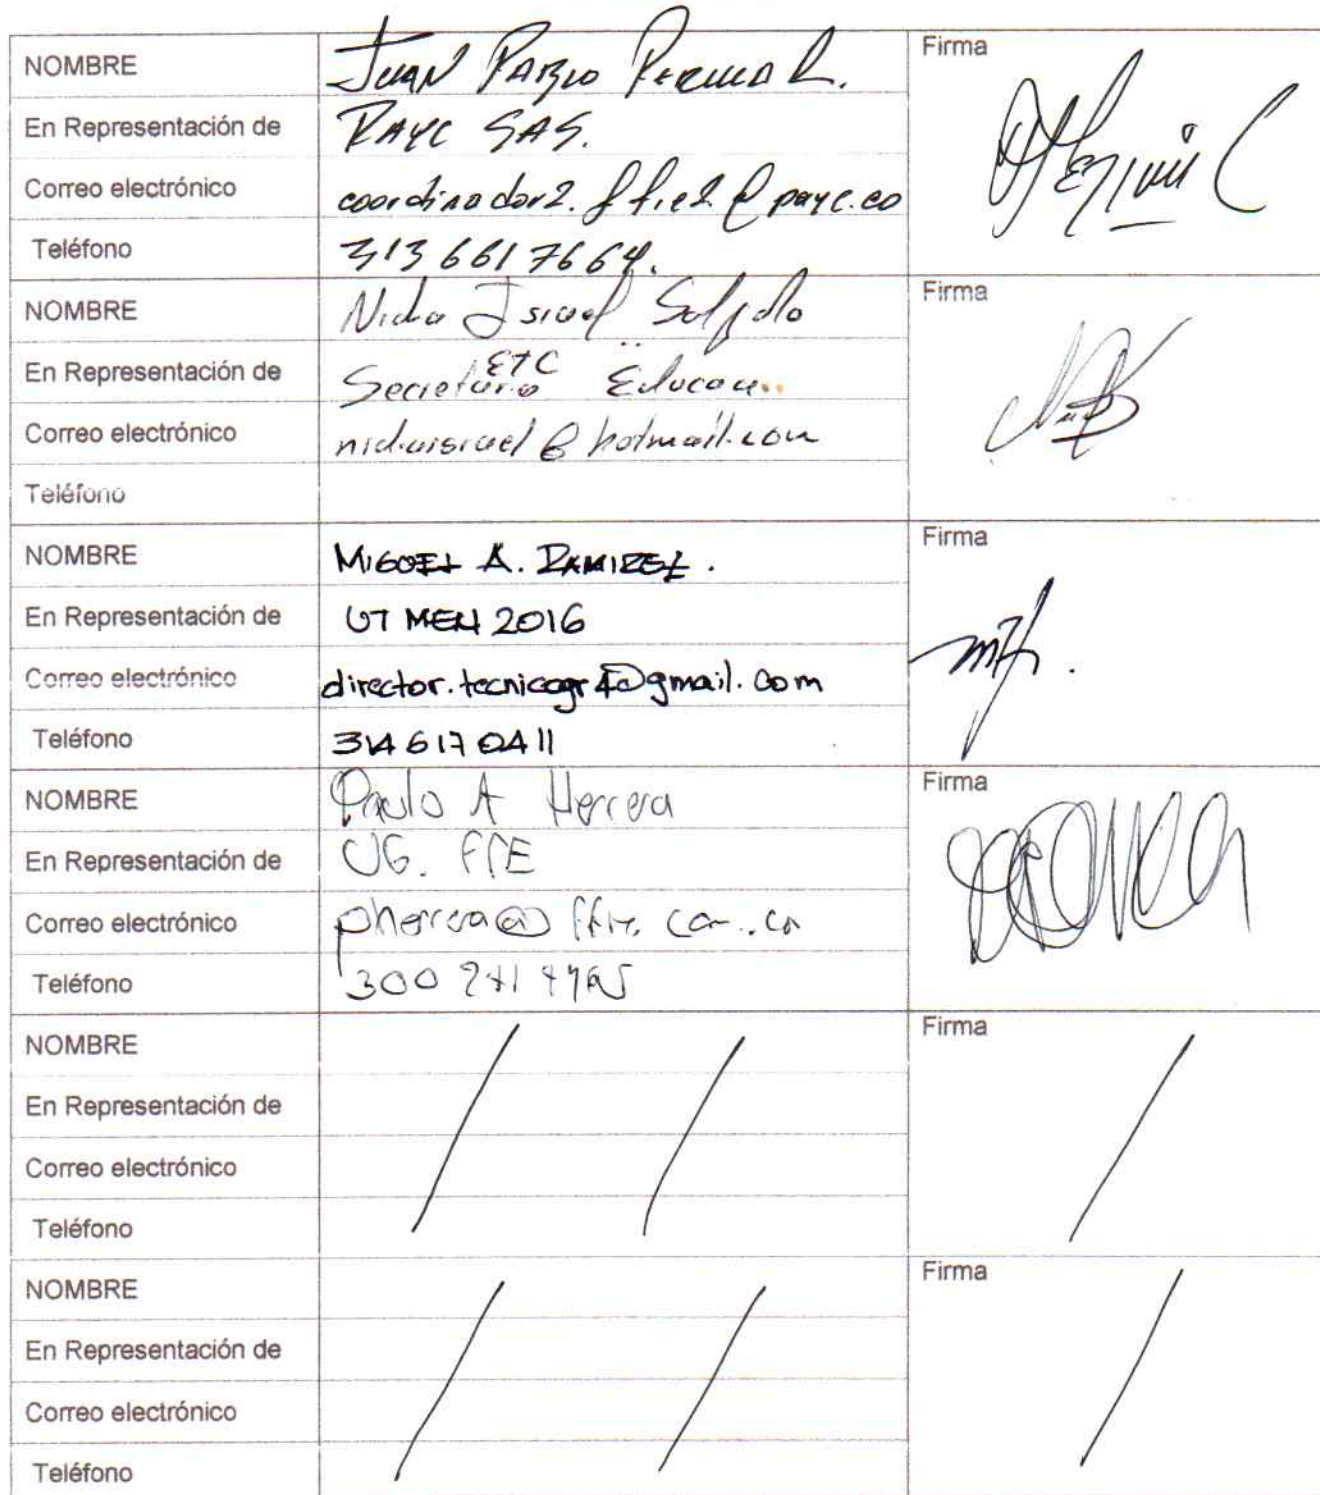 NOMBRE JUAN PABLO
Firma
En Representación de PAYC SAS.
Correo electrónico coordinador2.ffie2@payc.co
Teléfono 313 661 7664.
NOMBRE Israel
Firma
En Representación de ETC Secretaria
Correo electrónico @hotmail.com
Teléfono
NOMBRE MIGUEL A. RAMIREZ.
Firma
En Representación de UT MEN 2016
Correo electrónico director.tecnicogr4@gmail.com
Teléfono 314 617 0411
NOMBRE Paulo A Herrera
Firma
En Representación de UG. FFIE
Correo electrónico pherrera@
Teléfono 300
NOMBRE
Firma
En Representación de
Correo electrónico
Teléfono
NOMBRE
Firma
En Representación de
Correo electrónico
Teléfono